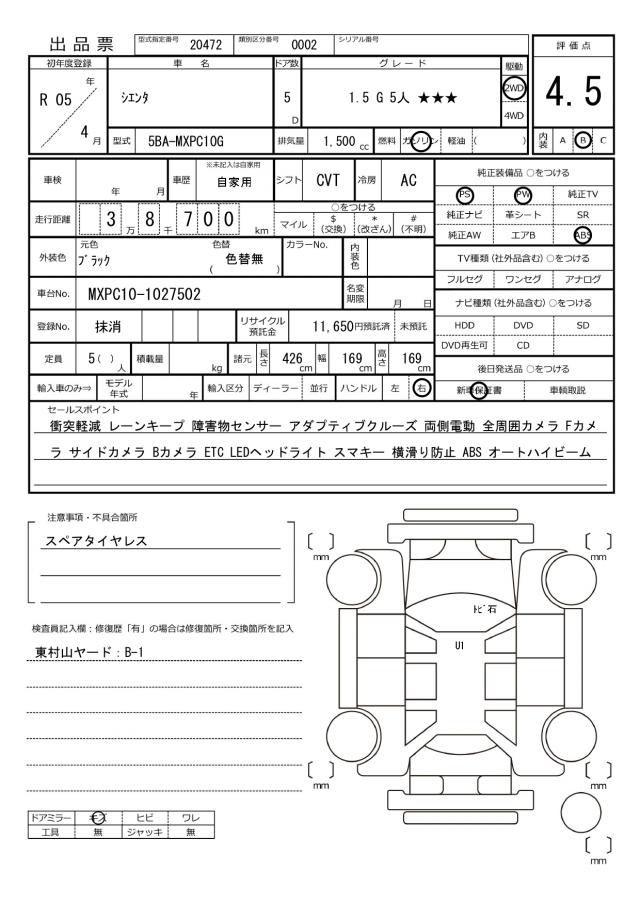 出品票
型式指定番号 20472 類別区分番号 0002 シリアル番号
評価点
4.5
内装 A B C
初年度登録 車名 ドア数 グレード 駆動
R 05 年 4 月
シエンタ
5 D
1.5 G 5人 ★★★
2WD
4WD
型式 5BA-MXPC10G 排気量 1,500 cc 燃料 ガソリン 軽油 ( )
車検 年 月 車歴 ※未記入は自家用 自家用 シフト CVT 冷房 AC
走行距離 3 8 7 0 0 万 千 km
○をつける
マイル $(交換) *(改ざん) #(不明)
外装色 元色 ブラック 色替 ( 色替無 ) カラーNo. 内装色
車台No. MXPC10-1027502 名変期限 月 日
登録No. 抹消 リサイクル預託金 11,650円預託済 未預託
定員 5( ) 人 積載量 kg 諸元 長さ 426 cm 幅 169 cm 高さ 169 cm
輸入車のみ⇒ モデル年式 年 輸入区分 ディーラー 並行 ハンドル 左 右
純正装備品 ○をつける
PS PW 純正TV
純正ナビ 革シート SR
純正AW エアB ABS
TV種類(社外品含む)○をつける
フルセグ ワンセグ アナログ
ナビ種類(社外品含む)○をつける
HDD DVD SD
DVD再生可 CD
後日発送品 ○をつける
新車保証書 車輌取説
セールスポイント
衝突軽減 レーンキープ 障害物センサー アダプティブクルーズ 両側電動 全周囲カメラ Fカメ
ラ サイドカメラ Bカメラ ETC LEDヘッドライト スマキー 横滑り防止 ABS オートハイビーム
注意事項・不具合箇所
スペアタイヤレス
検査員記入欄：修復歴「有」の場合は修復箇所・交換箇所を記入
東村山ヤード：B-1
ドアミラー キズ ヒビ ワレ
工具 無 ジャッキ 無
〔 〕 mm
〔 〕 mm
トビ石
U1
〔 〕 mm
〔 〕 mm
〔 〕 mm